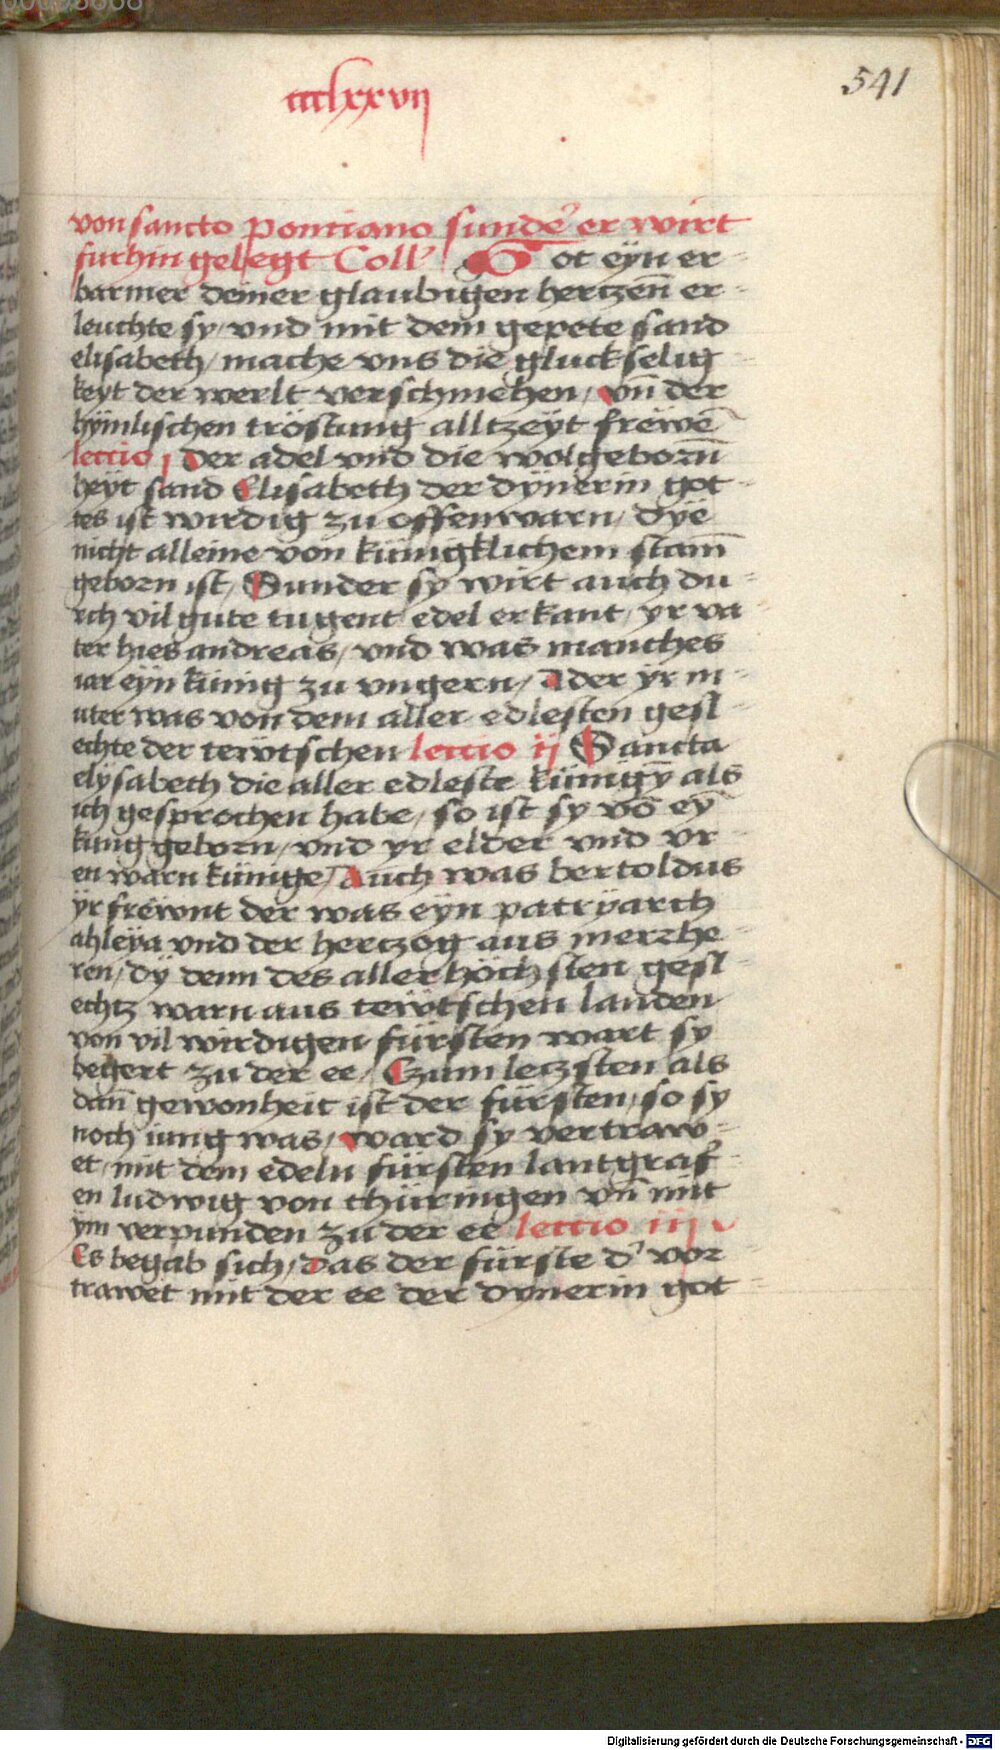 cccclxxvij
541
von sancto Pontiano sunde͛ er wirt
furhin gelegt Coll͛ Got eyn er-
barmer deiner glaubigen hertzen̄ er-
leuchte sy / vnd mit dem gepete sand
elisabeth / mache vns die gluckselig-
keyt der werlt verschmehen / vn̄ der
hÿmlischen tröstung alltzeÿt frewē
lectio j Der adel vnd die wolgeborn̄-
heÿt sand Elisabeth der dÿnerin got-
tes ist wirdig zu offenwarn / dÿe
nicht alleine von künigklichem stam̄
geborn ist / Sunder sy wirt auch du-
rch vil gute tugent edel erkant / yr va-
ter hies andreas / vnd was manches
iar eÿn künig zu vngern / Ader ÿr m-
uter was von dem aller edlesten gesl-
echte der tewtschen lectio ij Sancta
elÿsabeth die aller edleste künigÿ̄ als
ich gesprochen habe / so ist sy vō eÿ̄
kung geborn / vnd yr elder vnd vr-
en warn künige / Auch was bertoldus
ÿr frewnt der was eÿn patrÿarch
ahleÿa vnd der hertzog aus merrhe-
ren / dÿ denn des aller höchsten gesl-
echtz warn aus tewtschen landen
von vil wirdigen fürsten wart sy
begert zu der ee / Czum leczsten als
dan̄ gewonheit ist der fürsten / so sy
noch iung was / ward sy vertraw-
et / mit dem edeln fürsten lantgraf-
en ludwig von thüringen vn̄ mit
ÿm verpunden zu der ee lectio iij
Es begab sich / Das der fürste d͛ vor
trawet mit der ee der dynerin got-
Digitalisierung gefördert durch die Deutsche Forschungsgemeinschaft - DFG